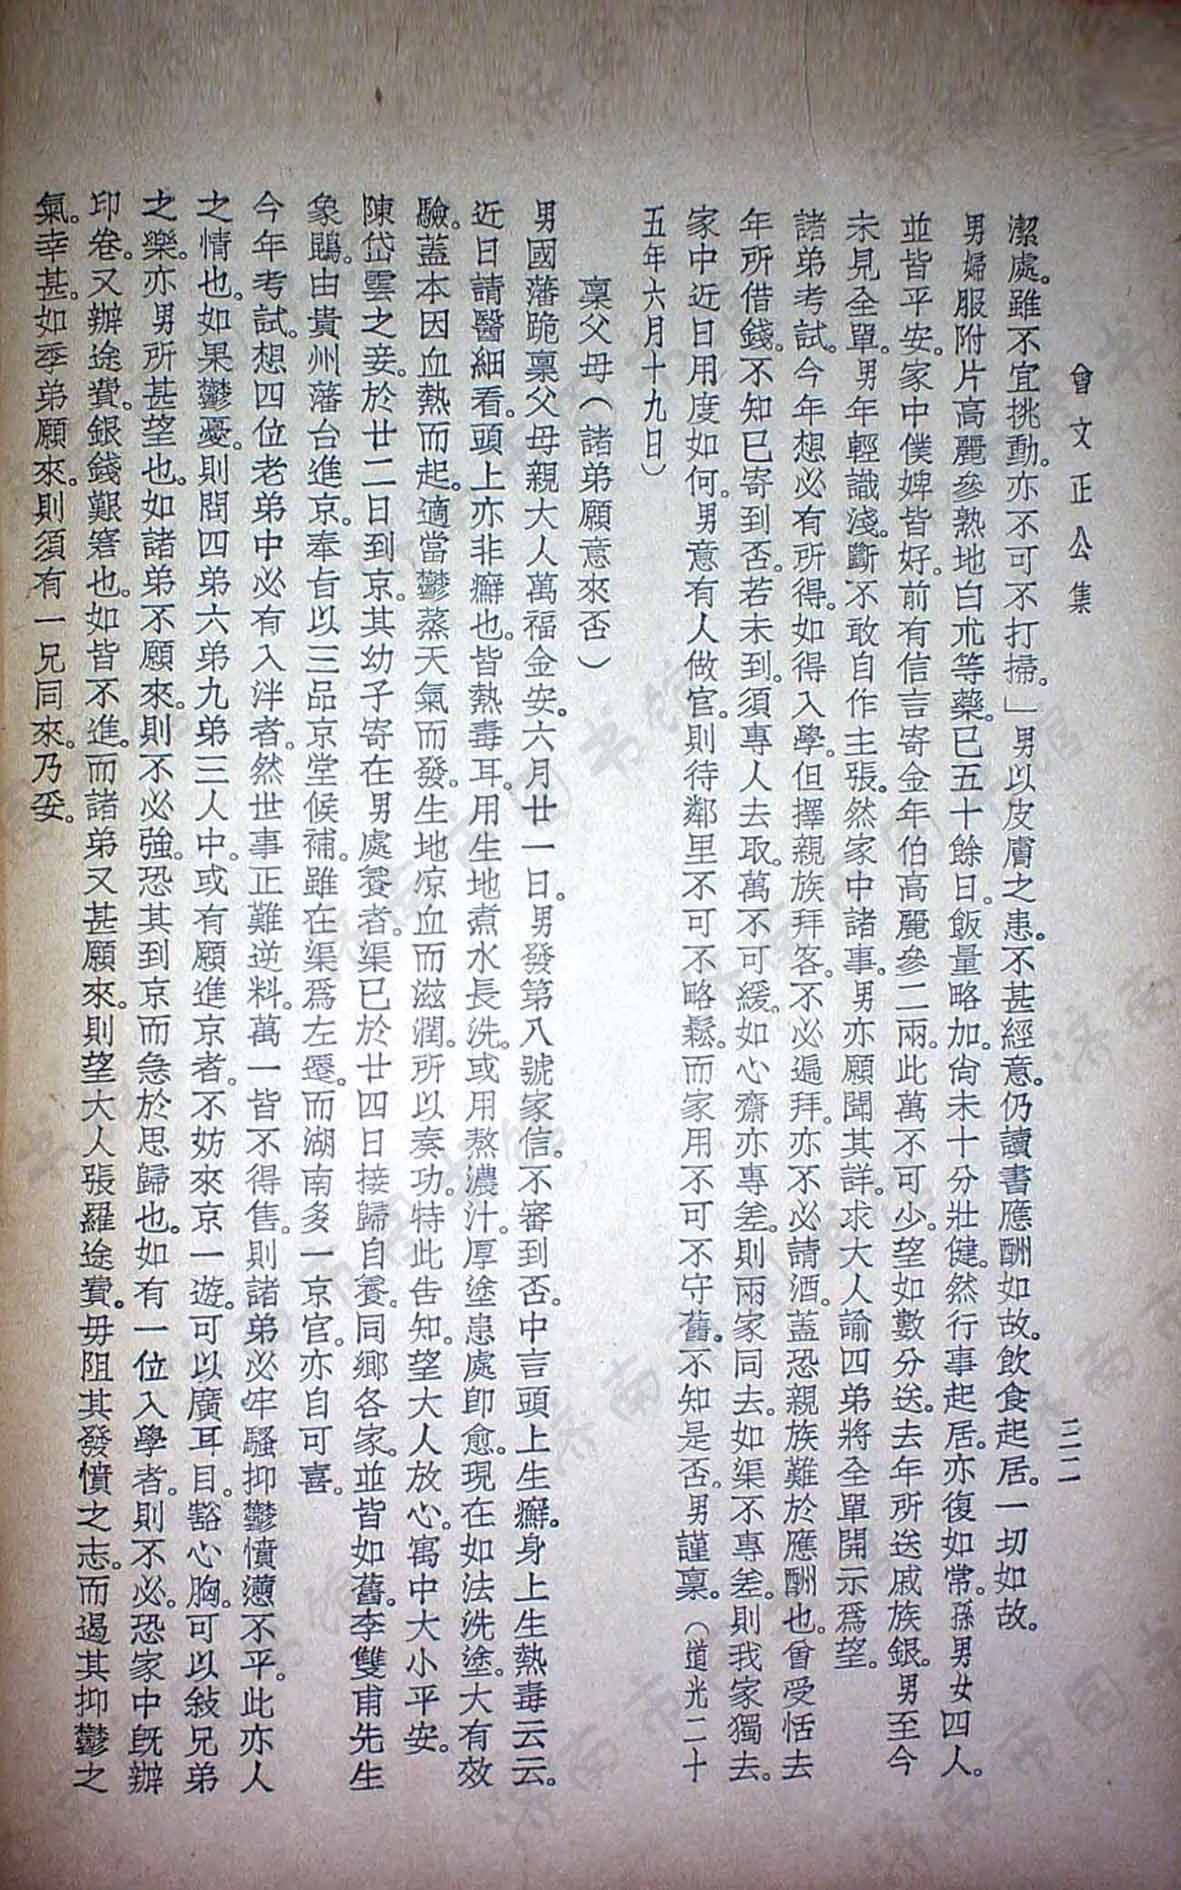 曾文正公集
三二
潔處。雖不宜挑動。亦不可不打掃。」男以皮膚之患。不甚經意。仍讀書應酬如故。飲食起居。一切如故。
男婦服附片高麗參熟地白朮等藥。已五十餘日。飯量略加。尙未十分壯健。然行事起居。亦復如常。孫男女四人。
並皆平安。家中僕婢皆好。前有信言寄金年伯高麗參二兩。此萬不可少。望如數分送。去年所送戚族銀。男至今
未見全單。男年輕識淺。斷不敢自作主張。然家中諸事。男亦願聞其詳。求大人諭四弟將全單開示爲望。
諸弟考試。今年想必有所得。如得入學。但擇親族拜客。不必遍拜。亦不必請酒。蓋恐親族難於應酬也。曾受恬去
年所借錢。不知已寄到否。若未到。須專人去取。萬不可緩。如心齋亦專差。則兩家同去。如渠不專差。則我家獨去。
家中近日用度如何。男意有人做官。則待鄰里不可不略鬆。而家用不可不守舊。不知是否。男謹稟。（道光二十
五年六月十九日）
稟父母（諸弟願意來否）
男國藩跪稟父母親大人萬福金安。六月廿一日。男發第八號家信。不審到否。中言頭上生癬。身上生熱毒云云。
近日請醫細看。頭上亦非癬也。皆熱毒耳。用生地煮水長洗。或用熬濃汁。厚塗患處卽愈。現在如法洗塗。大有效
驗。蓋本因血熱而起。適當鬱蒸天氣而發。生地凉血而滋潤。所以奏功。特此告知。望大人放心。寓中大小平安。
陳岱雲之妾。於廿二日到京。其幼子寄在男處養者。渠已於廿四日接歸自養。同鄉各家。並皆如舊。李雙甫先生
象鵾。由貴州藩台進京。奉旨以三品京堂候補。雖在渠爲左遷。而湖南多一京官。亦自可喜。
今年考試。想四位老弟中必有入泮者。然世事正難逆料。萬一皆不得售。則諸弟必牢騷抑鬱憤懣不平。此亦人
之情也。如果鬱憂。則問四弟六弟九弟三人中。或有願進京者。不妨來京一遊。可以廣耳目。豁心胸。可以敍兄弟
之樂。亦男所甚望也。如諸弟不願來。則不必強。恐其到京而急於思歸也。如有一位入學者。則不必。恐家中旣辦
印卷。又辦途費。銀錢艱窘也。如皆不進。而諸弟又甚願來。則望大人張羅途費。毋阻其發憤之志。而遏其抑鬱之
氣。幸甚。如季弟願來。則須有一兄同來。乃妥。